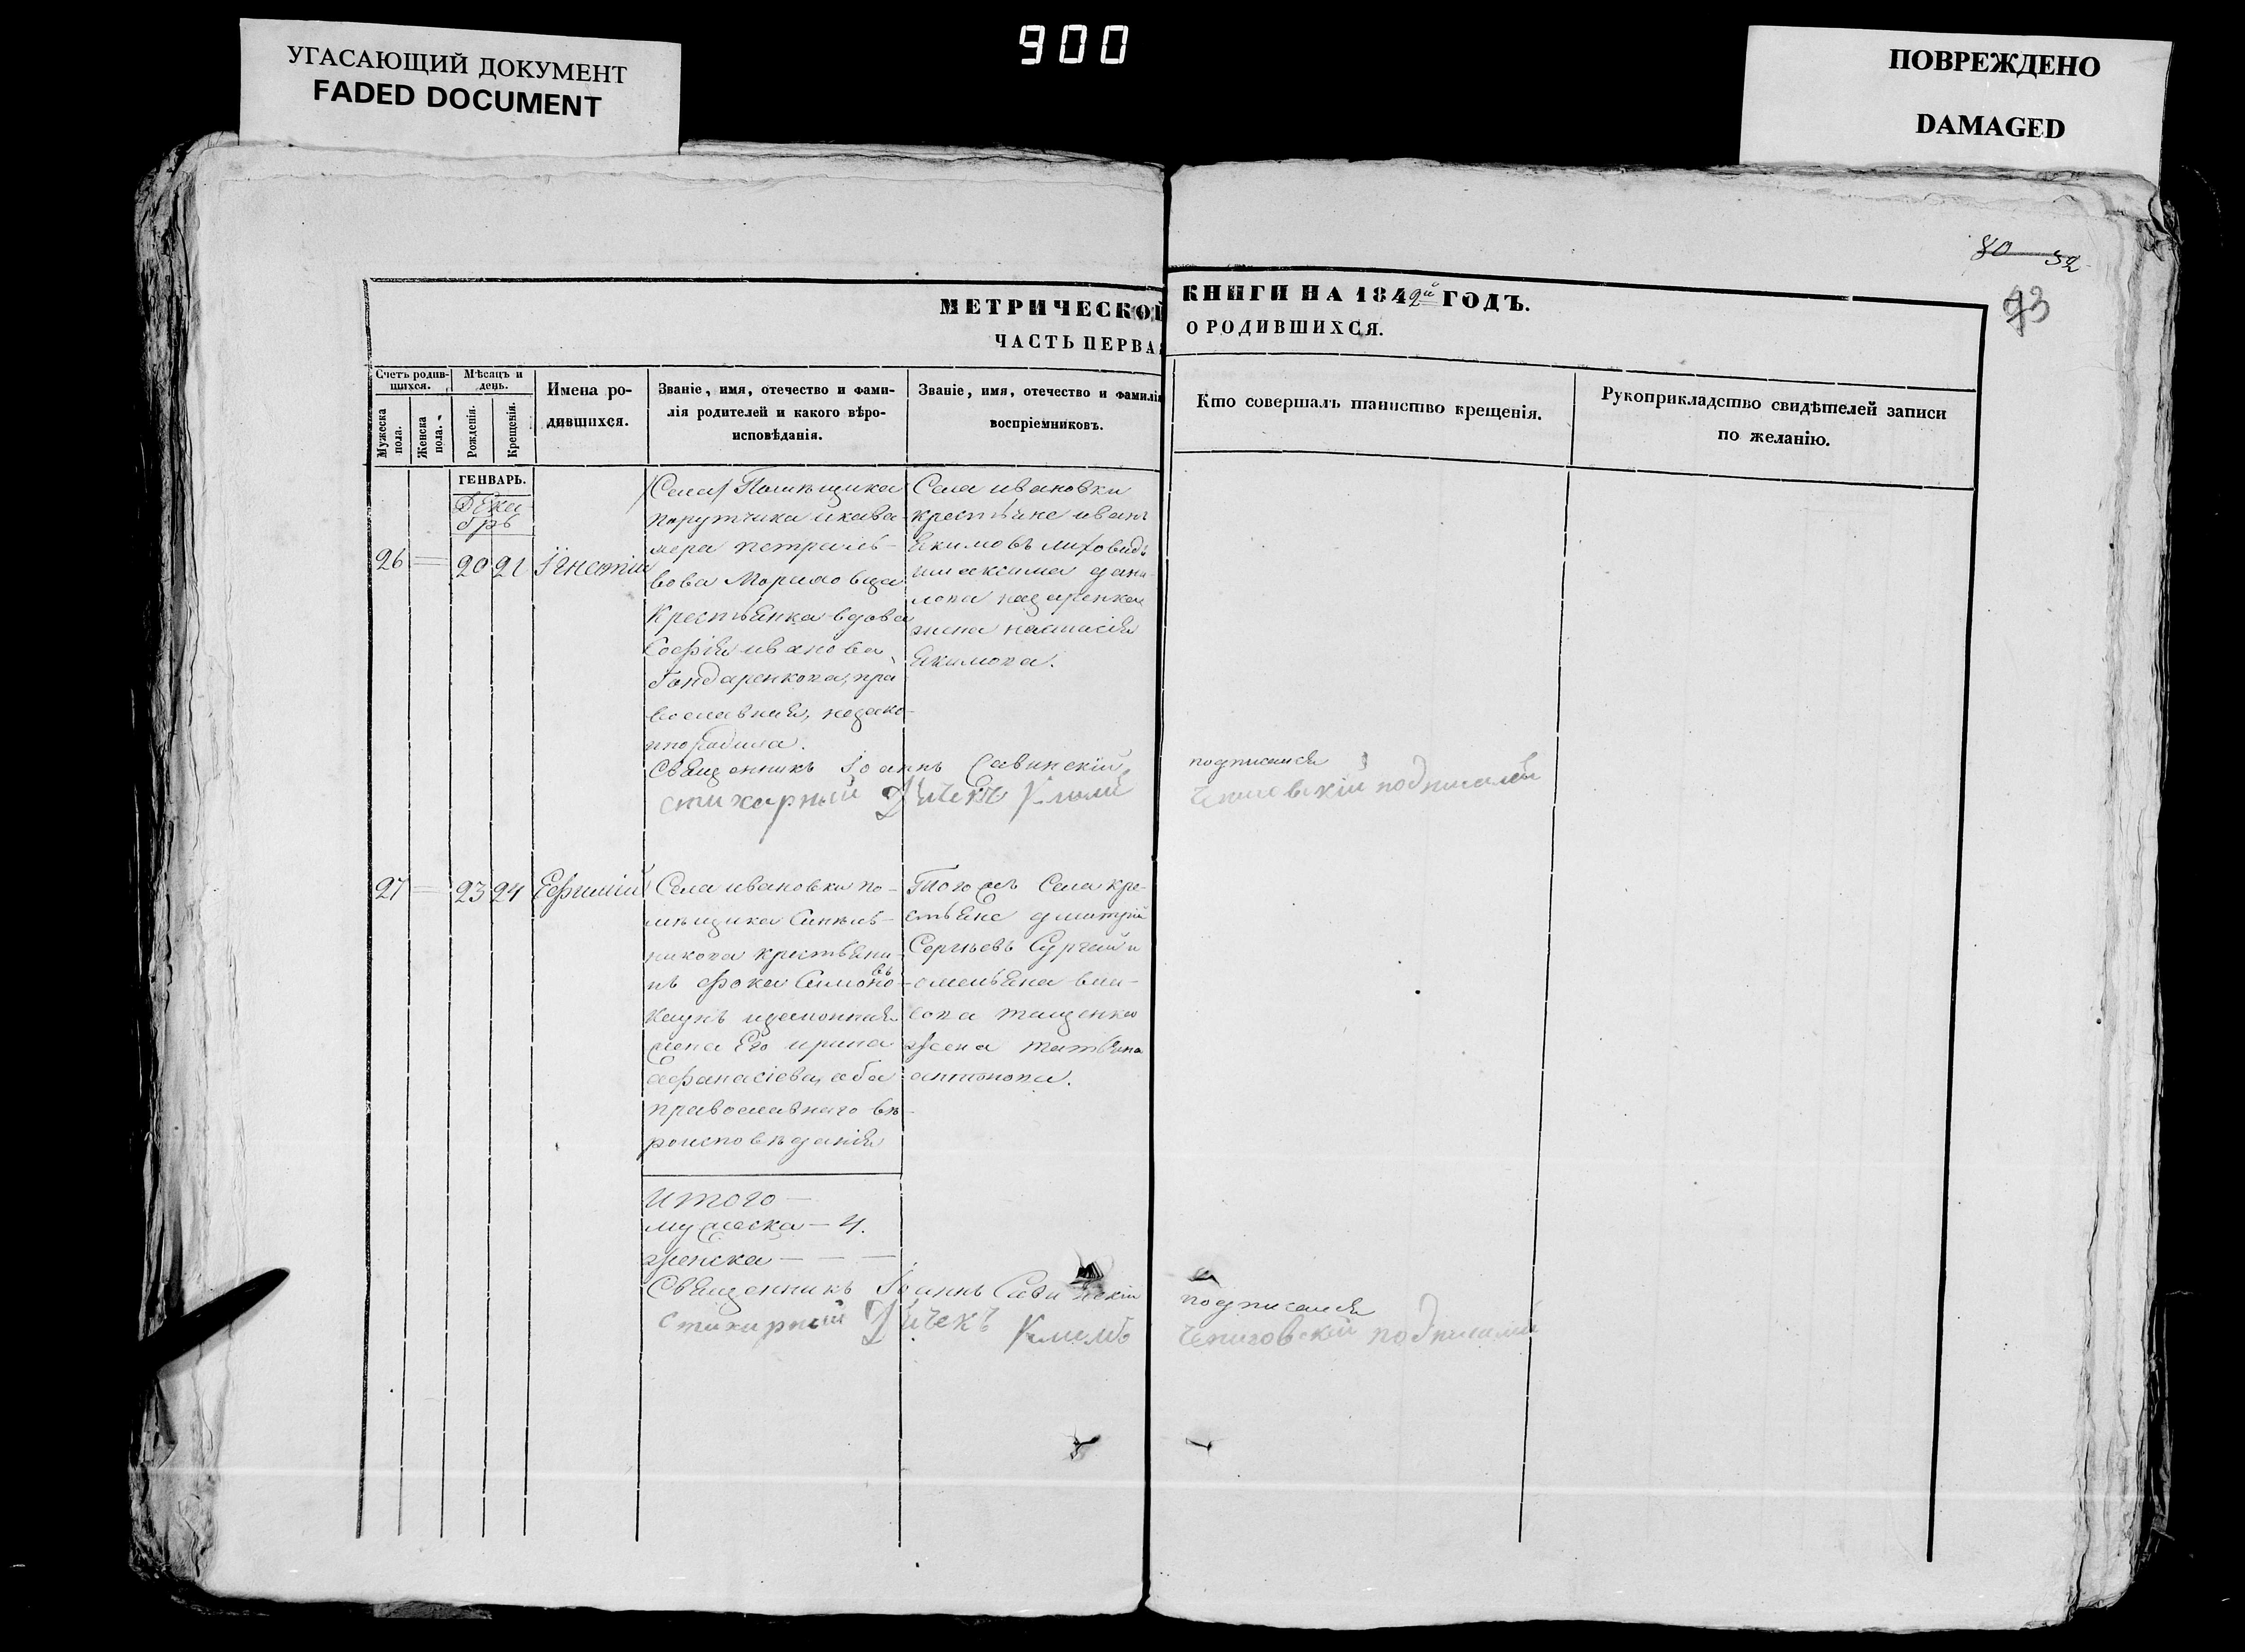 900
УГАСАЮЩИЙ ДОКУМЕНТ
FADED DOCUMENT
ПОВРЕЖДЕНО
DAMAGED
80 52
93
МЕТРИЧЕСКОЙ КНИГИ НА 1842й ГОДЪ.
ЧАСТЬ ПЕРВА О РОДИВШИХСЯ.
Счетъ родив-
шихся.
Мужеска
пола.
Женска
пола.
Мѣсяцъ и
день.
Рожденія.
Крещенія.
Имена ро-
дившихся.
Званіе, имя, отечество и фами-
лія родителей и какого вѣро-
исповѣданія.
Званіе, имя, отечество и фамилія
воспріемниковъ.
Кто совершалъ таинство крещенія.
Рукоприкладство свидѣтелей записи
по желанію.
ГЕНВАРЬ.
Дека-
брь
26 = 20 21
Села Помѣщика
порутчика икава-
лера петра
вова
крестьянка вдова
Софія иванова
Гондаренкова, пра
вославная,
Села ивановки
крестьяне иванъ
Екимовъ
имаксима дани-
лова
жена настасія
Екимова.
Священникъ Іоаннъ Савинскій подписался
стихарный Дячекъ Климъ подписался
27 = 23 24 Ефимій
Села ивановки по-
мѣщика Синель-
никова крестьяни-
нъ фока Симоновъ
изаконная
жена Его ирина
Еафанасіева, оба
православнаго вѣ-
роисповѣданія
Того жъ Села кре-
стьяне дмитрій
Сергѣевъ и
емельяна вла-
сова тащенка
жена татьяна
антонова.
итого —
мужеска — 4.
женска — — —
Священникъ Іоаннъ Савинскій подписался
стихирный Дячекъ Климъ Чениговскій подписался